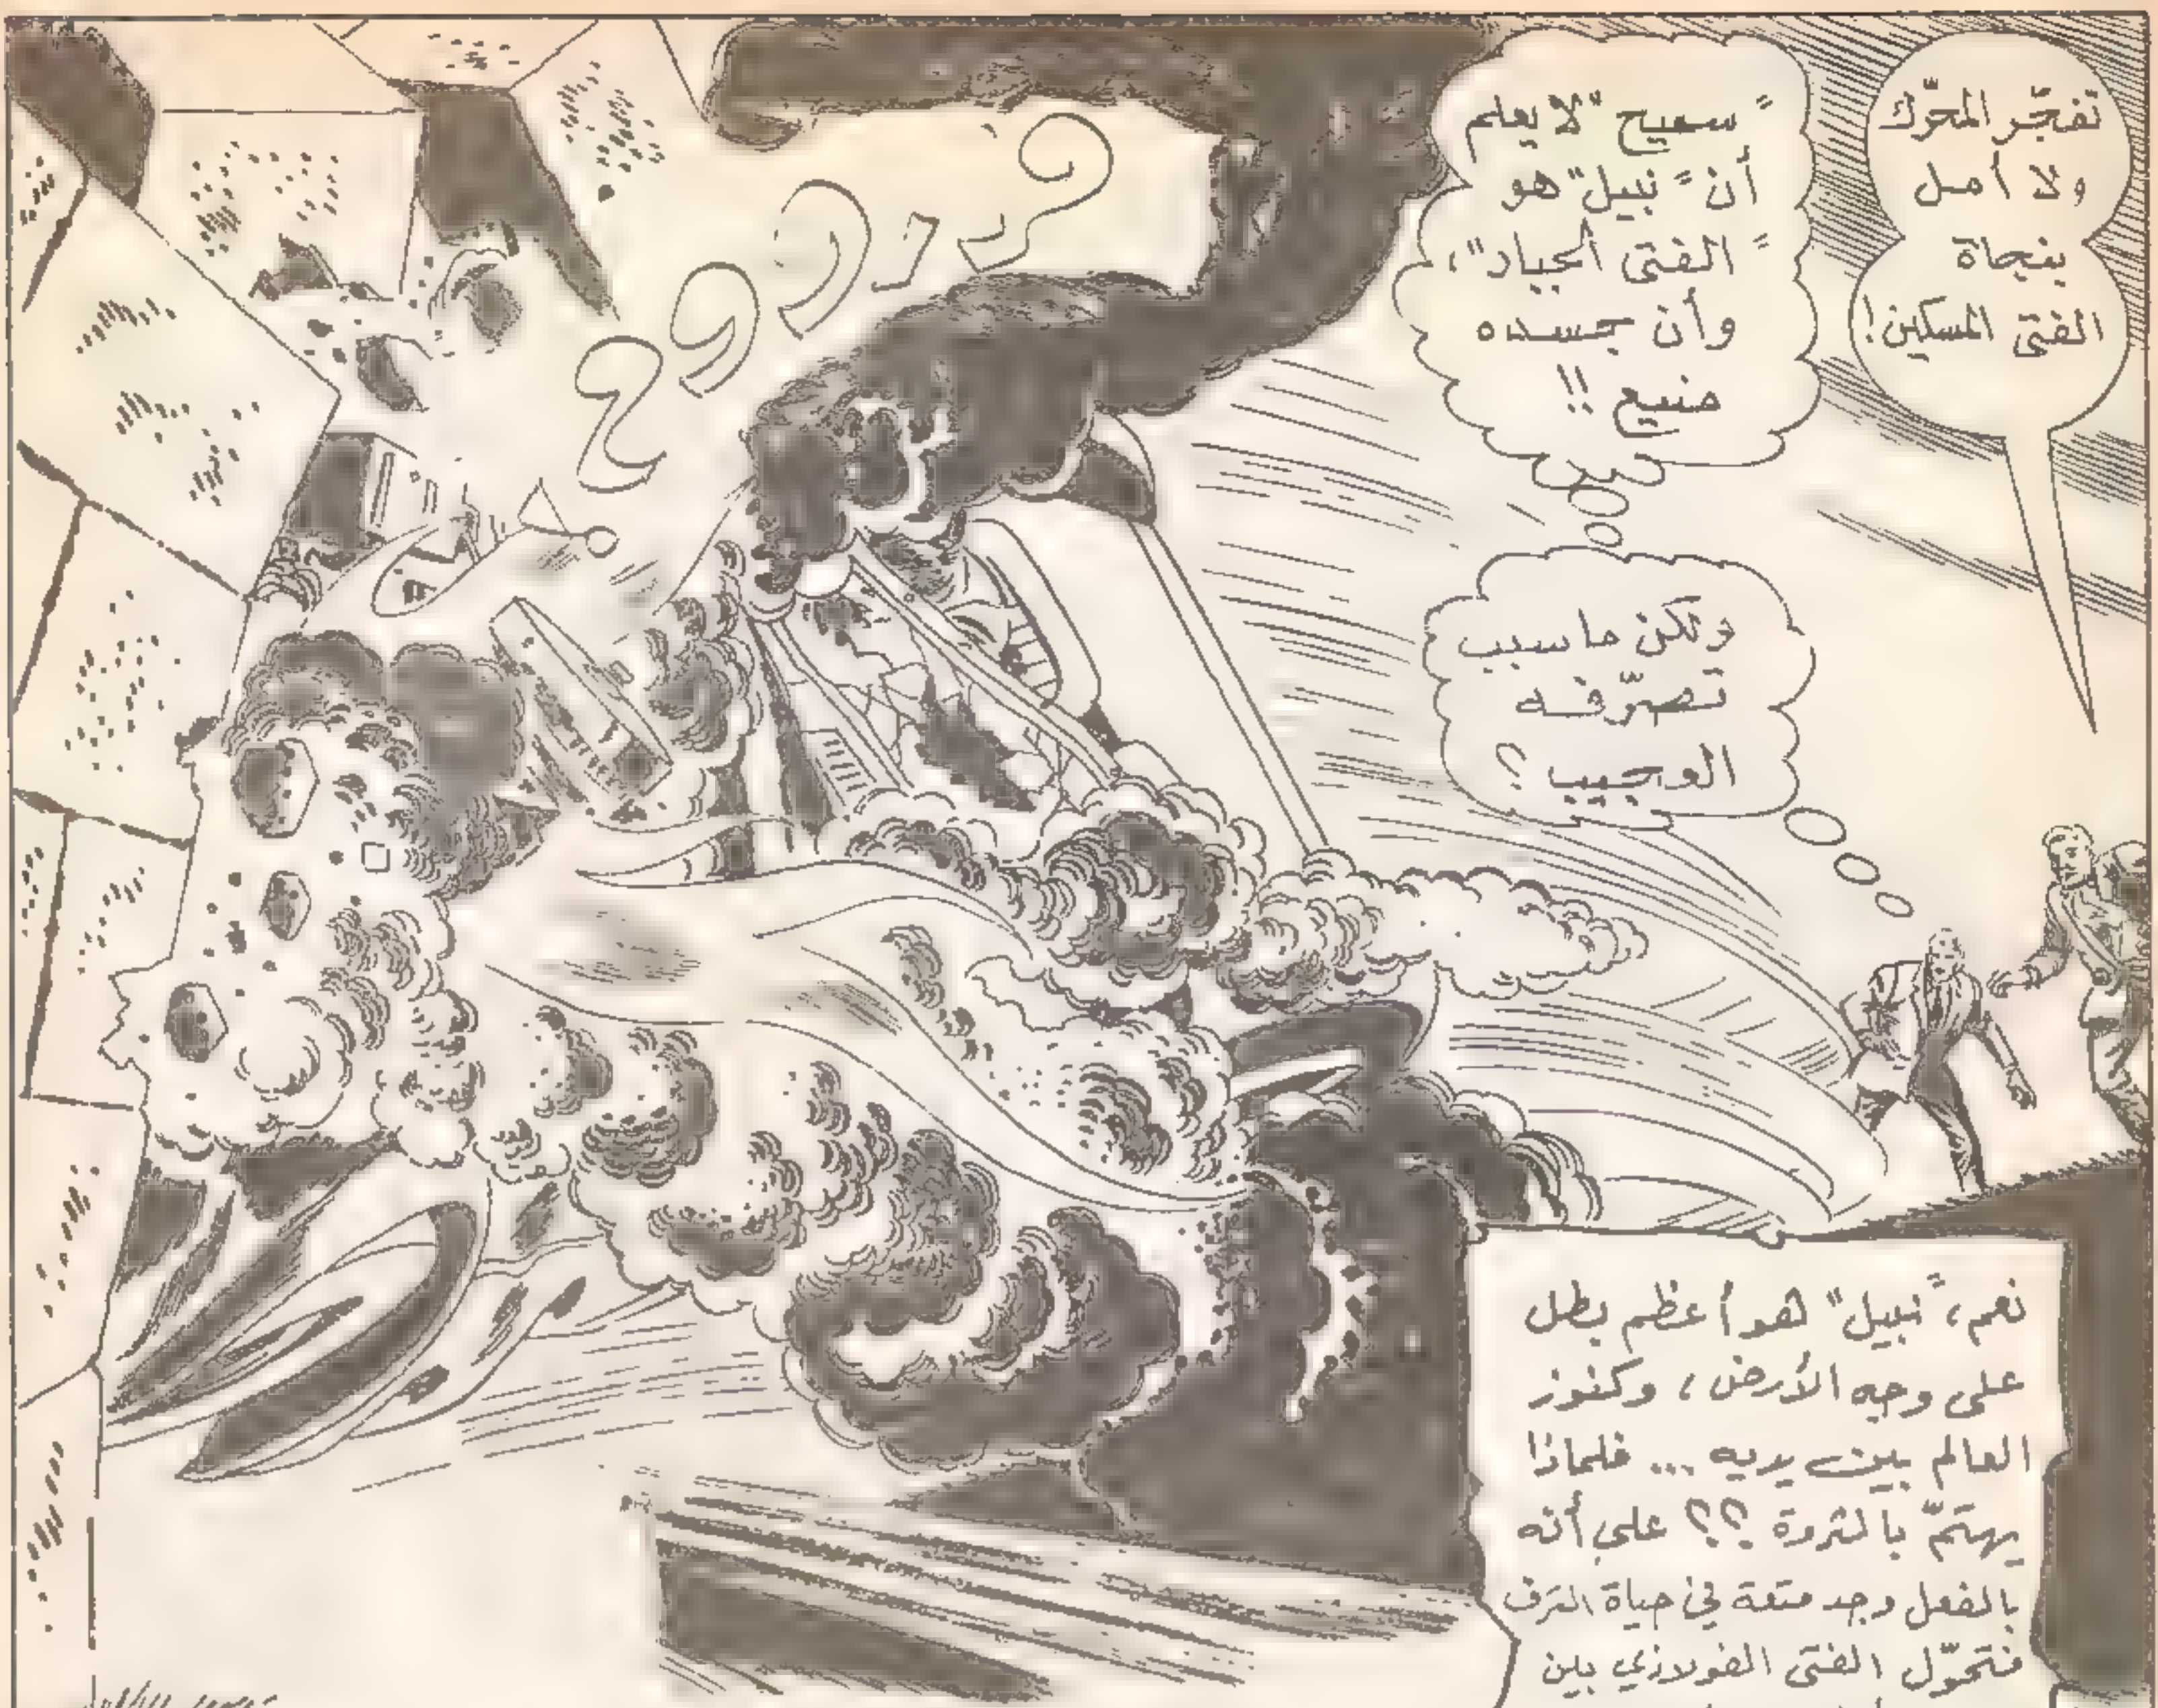 تفجّر المحرّك
ولا أمل
بنجاة
الفتى المسكين!
"سميح" لا يعلم
أن "نبيل" هو
"الفتى الجبار"،
وأن جسده
منيع!!
ولكن ما سبب
تصرّفه
العجيب؟
نعم، "نبيل" هو أعظم بطل
على وجه الأرض، وكنوز
العالم بين يديه... فلماذا
يهتمّ بالثروة؟؟ على أنه
بالفعل وجد متعة في حياة الترف
فتحوّل الفتى الفولاذي بين